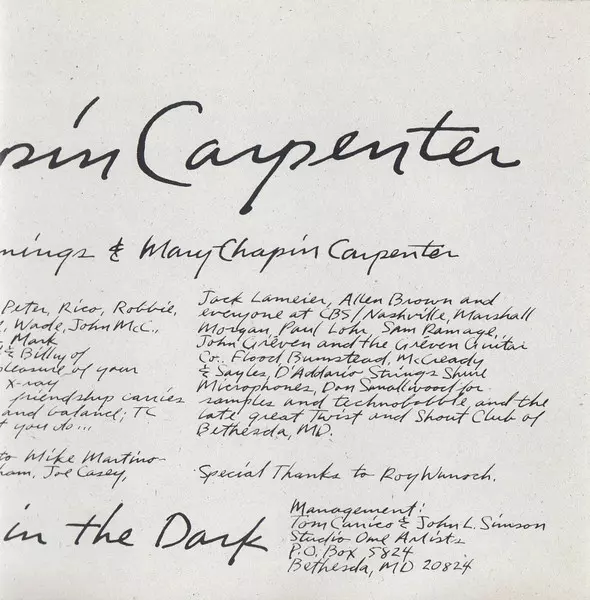 pin Carpenter
nings & Mary Chapin Carpenter
Peter, Rico, Robbie,
Wade, John McC.,
Mark
& Billy of
pleasure of your
x-ray
friendship carries
and balance; TC
t you do...
to Mike Martino
ham, Joe Casey,
Jack Lameier, Allen Brown and
everyone at CBS/Nashville, Marshall
Morgan, Paul Lohr, Sam Ramage,
John Greven and the Greven Guitar
Co., Flood Bumstead, McCready
& Sayles, D'Addario Strings Shure
Microphones, Don Smallwood for
samples and technobabble and the
late great Twist and Shout Club of
Bethesda, MD.
Special Thanks to Roy Wunsch.
in the Dark
Management:
Tom Carrico & John L. Simson
Studio One Artists
P.O. Box 5824
Bethesda, MD 20824